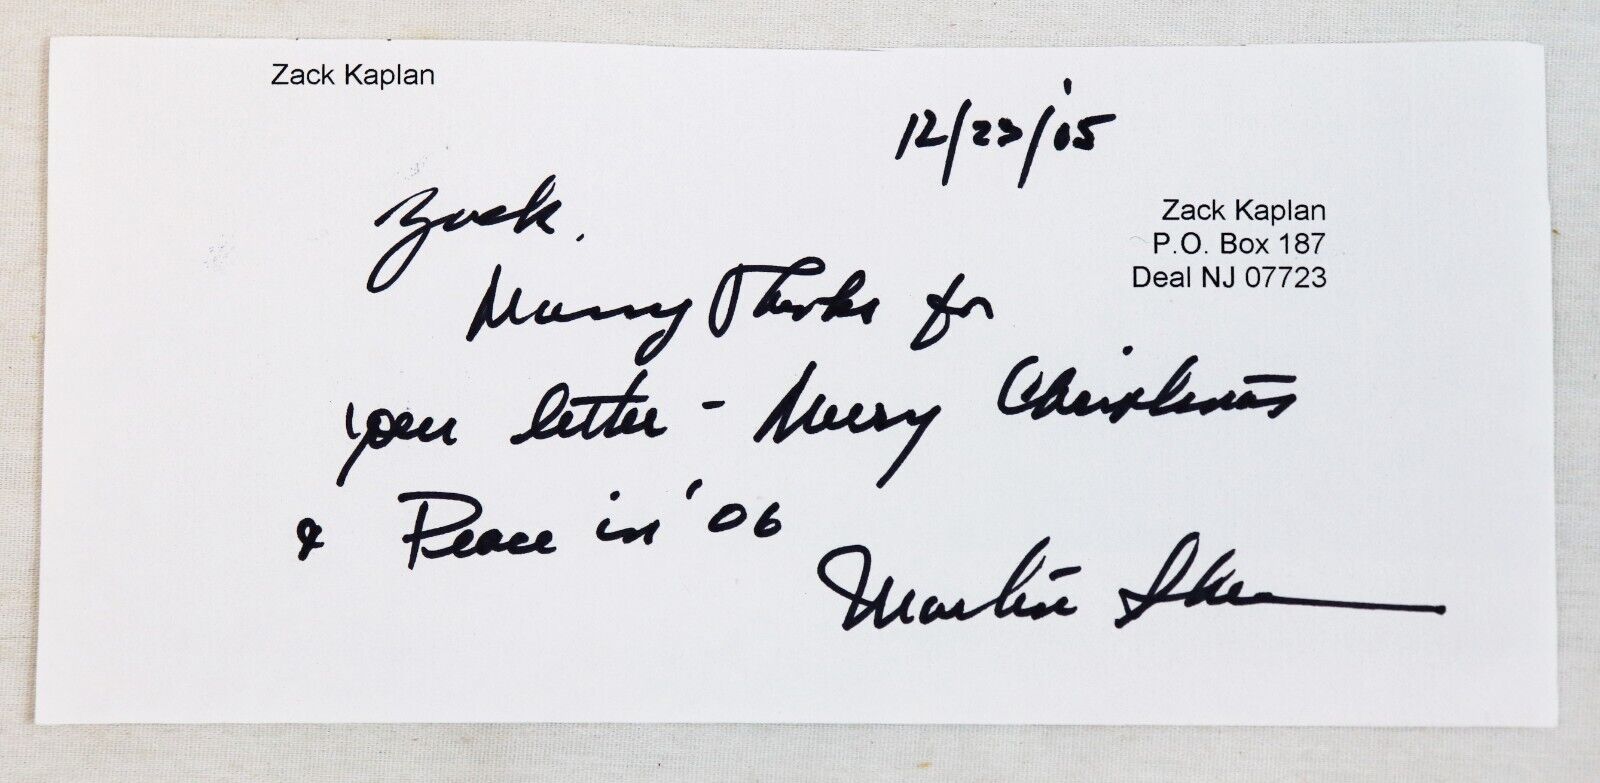 Zack Kaplan
12/23/'05
Zack Kaplan
P.O. Box 187
Deal NJ 07723
Zack,
Many Thanks for
your letter - Merry Christmas
& Peace in '06
Martin Sheen